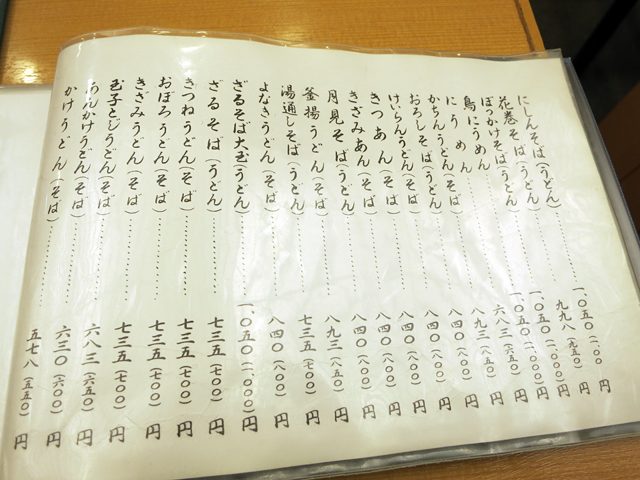 にしんそば(うどん)………一、〇五〇(一、〇〇〇)円
花巻そば(うどん)………九九八(九五〇)円
ぼっかけそば(うどん)………一、〇五〇(一、〇〇〇)円
鳥にうめん………一、〇五〇(一、〇〇〇)円
にうめん………六八三(六五〇)円
かちんうどん(そば)………八九三(八五〇)円
おろしそば(うどん)………八四〇(八〇〇)円
けいらんうどん(そば)………八四〇(八〇〇)円
きつあん(そば)………八四〇(八〇〇)円
きざみあん(そば)………八四〇(八〇〇)円
月見そば(うどん)………八四〇(八〇〇)円
釜揚うどん(そば)………八九三(八五〇)円
湯通しそば(うどん)………七三五(七〇〇)円
よなきうどん(そば)………八四〇(八〇〇)円
ざるそば大玉(うどん)………一、〇五〇(一、〇〇〇)円
ざるそば(うどん)………七三五(七〇〇)円
きつねうどん(そば)………七三五(七〇〇)円
おぼろうどん(そば)………七三五(七〇〇)円
きざみうどん(そば)………七三五(七〇〇)円
玉子とじうどん(そば)………六八三(六五〇)円
あんかけうどん(そば)………六三〇(六〇〇)円
かけうどん(そば)………五七八(五五〇)円